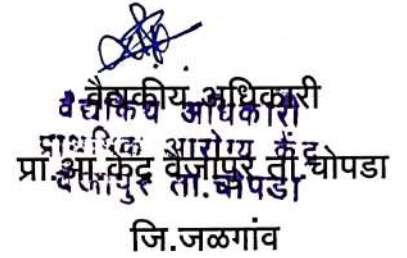 वैद्यकीय अधिकारी
वैद्यकिय अधिकारी
प्राथमिक आरोग्य केंद्र
प्रा.आ.केंद्र वैजापूर ता.चोपडा
वैजापुर ता.चोपडा
जि.जळगांव